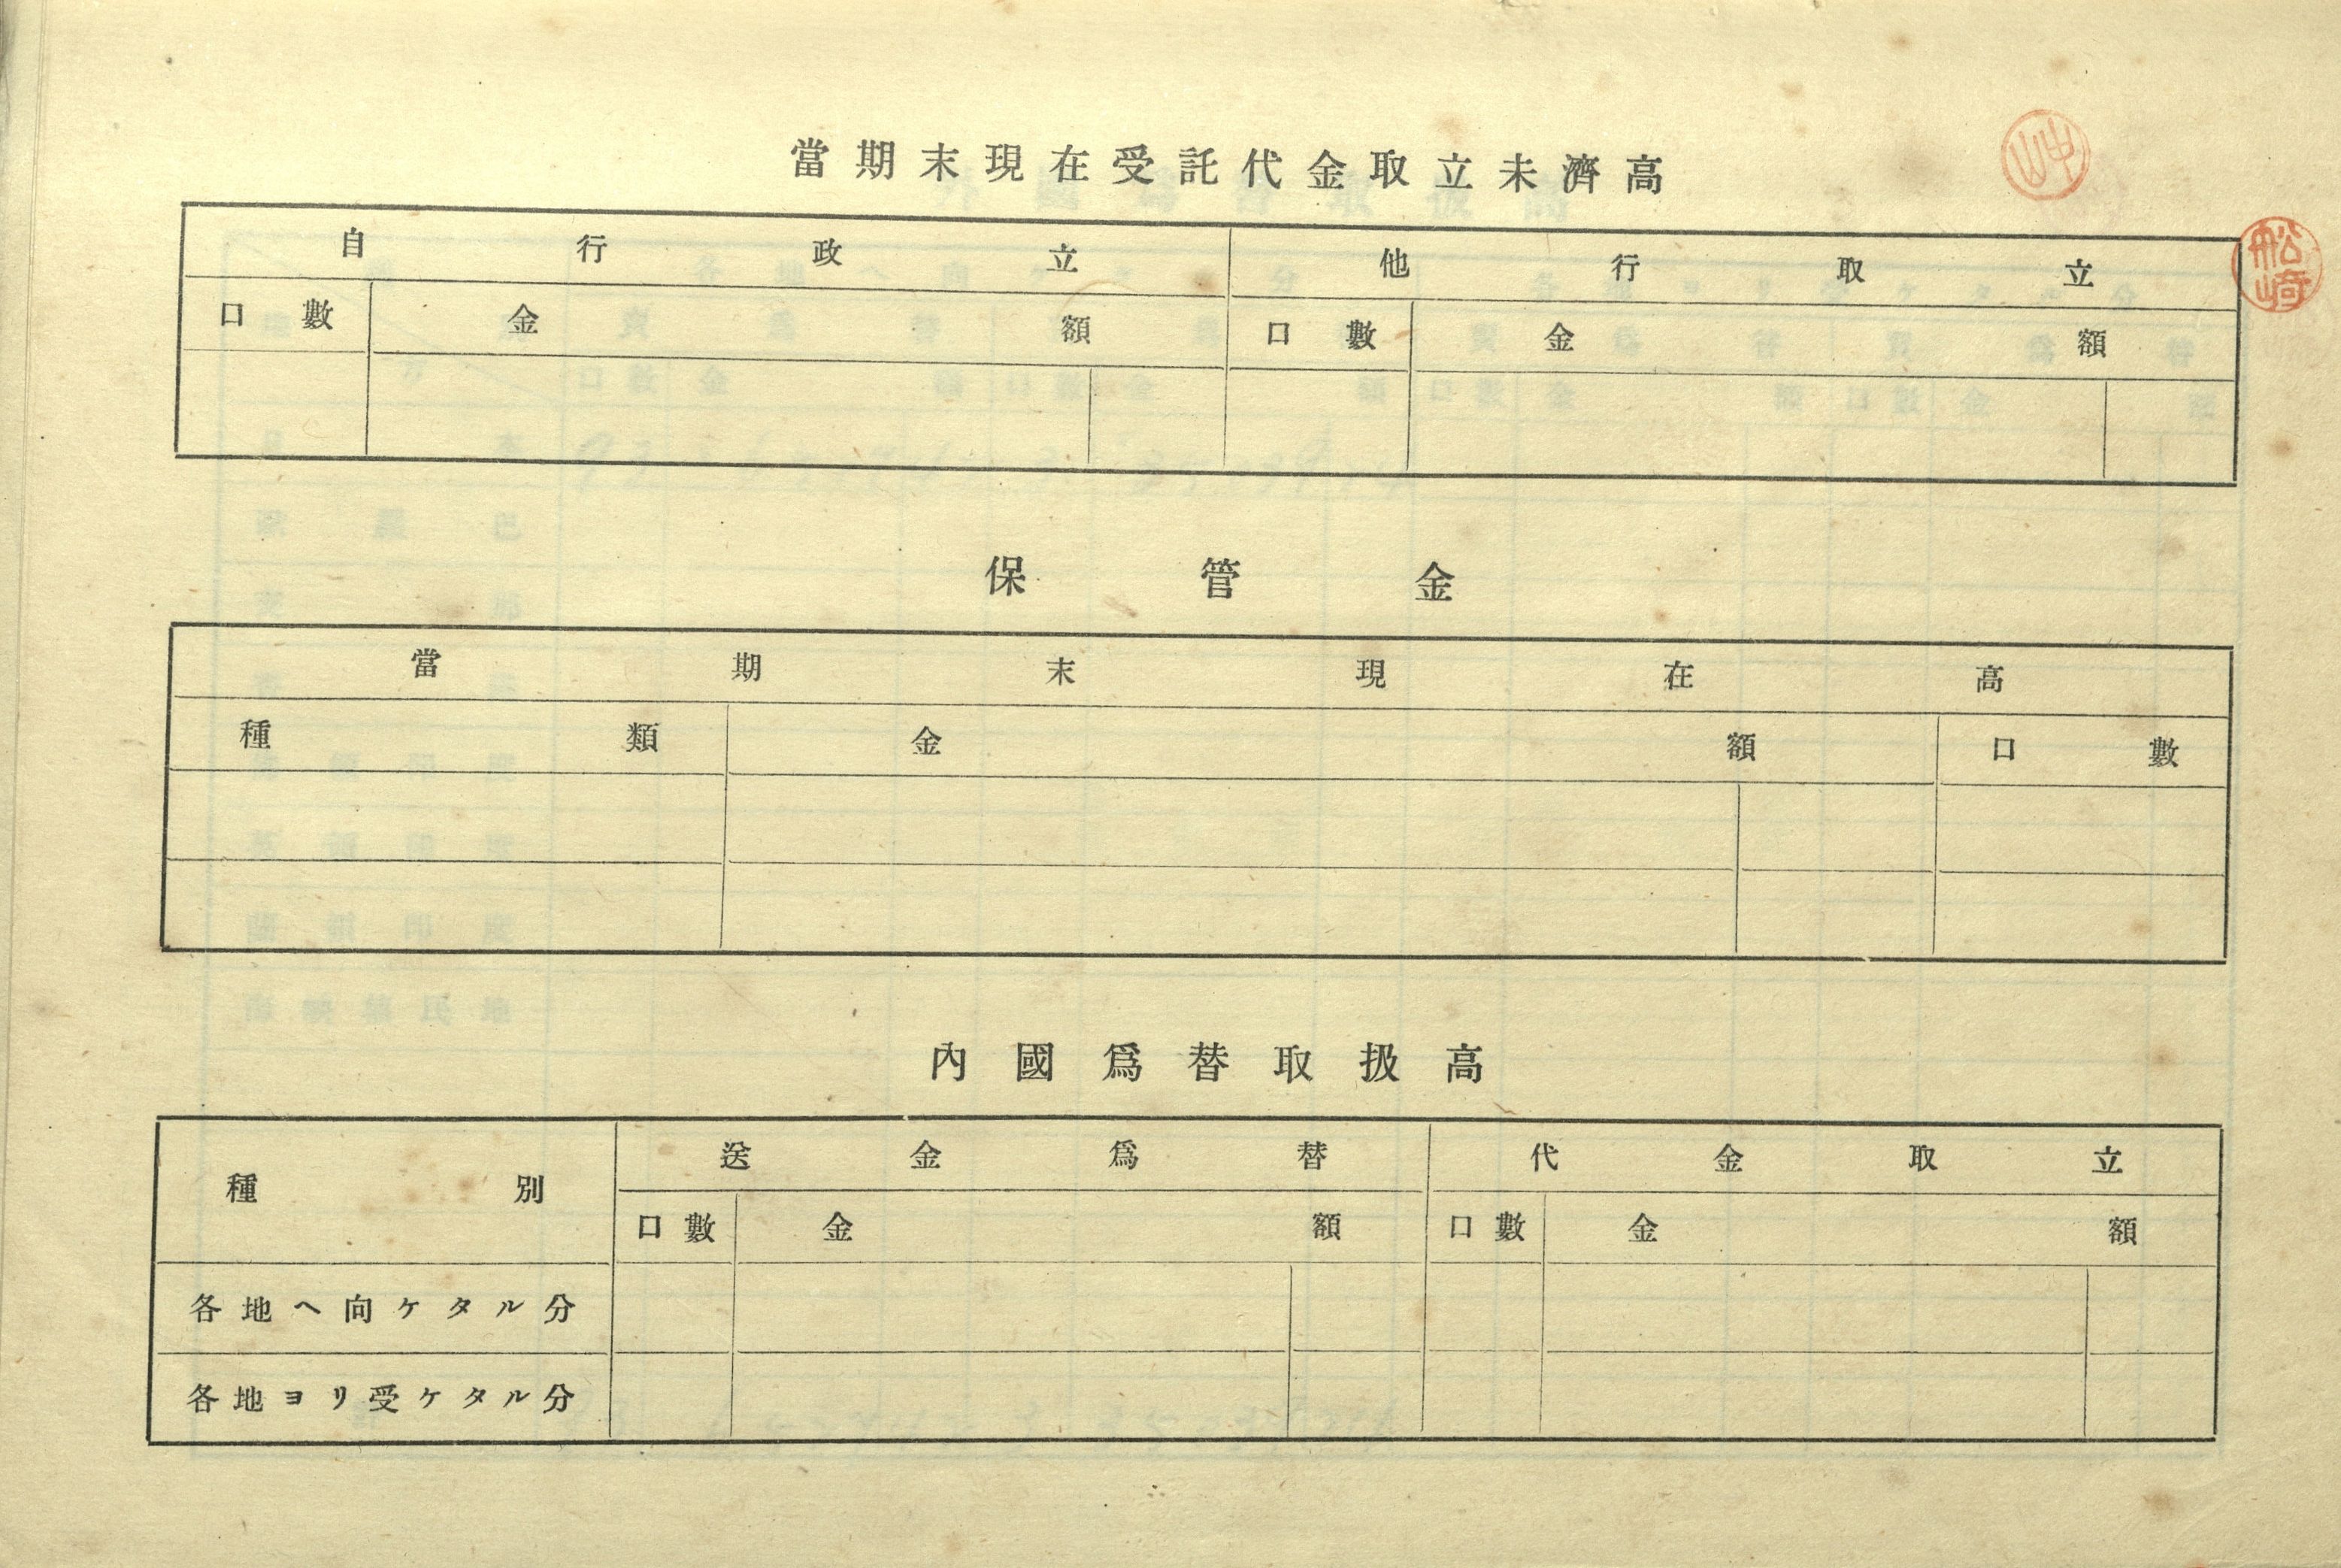 當期末現在受託代金取立未濟高
自行政立 他行取立
口數 金額 口數 金額
保管金
當期末現在高
種類 金額 口數
內國爲替取扱高
種別 送金爲替 代金取立
口數 金額 口數 金額
各地ヘ向ケタル分
各地ヨリ受ケタル分
船崎